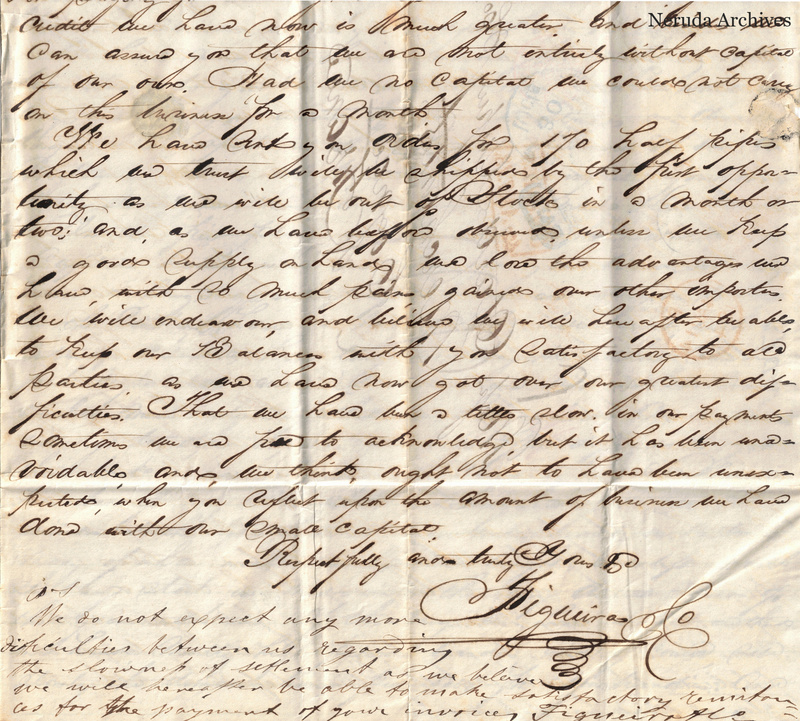 Neruda Archives
credit we have now is much greater. And
can assure you that we are not entirely without capital
of our own. Had we no capital we could not carry
on this business for a month.
We have sent you orders for 170 half pipes
which we trust will be shipped by the first oppor-
tunity as we will be out of Stock in a month or
two; and, as we have before observed, unless we keep
a good supply on hand, we lose the advantages we
have with so much pains gained over other importers.
We will endeavour, and believe we will hereafter be able
to keep our Balances with you satisfactory to all
parties as we have now got over our greatest dif-
ficulties. That we have been a little slow in our payments
sometimes we are free to acknowledge, but it has been una-
voidable and, we think, ought not to have been unex-
pected, when you reflect upon the amount of business we have
done with our small capital
Respectfully and truly Yours
Figueira & Co
P.S
We do not expect any more
difficulties between us regarding
the slowness of settlement as we believe
we will hereafter be able to make satisfactory remitan-
ces for the payment of your invoices, Figueira & Co